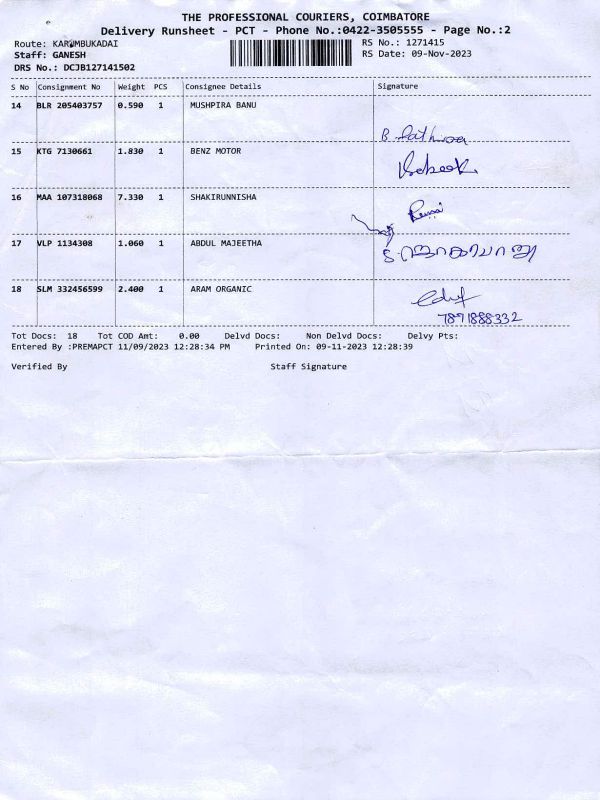 THE PROFESSIONAL COURIERS, COIMBATORE
Delivery Runsheet - PCT - Phone No.:0422-3505555 - Page No.:2
Route: KARUMBUKADAI RS No.: 1271415
Staff: GANESH RS Date: 09-Nov-2023
DRS No.: DCJB127141502
S No Consignment No Weight PCS Consignee Details Signature
14 BLR 205403757 0.590 1 MUSHPIRA BANU
B. Fathima
15 KTG 7130661 1.830 1 BENZ MOTOR
16 MAA 107318068 7.330 1 SHAKIRUNNISHA
17 VLP 1134308 1.060 1 ABDUL MAJEETHA
18 SLM 332456599 2.400 1 ARAM ORGANIC
7871888332
Tot Docs: 18 Tot COD Amt: 0.00 Delvd Docs: Non Delvd Docs: Delvy Pts:
Entered By :PREMAPCT 11/09/2023 12:28:34 PM Printed On: 09-11-2023 12:28:39
Verified By Staff Signature